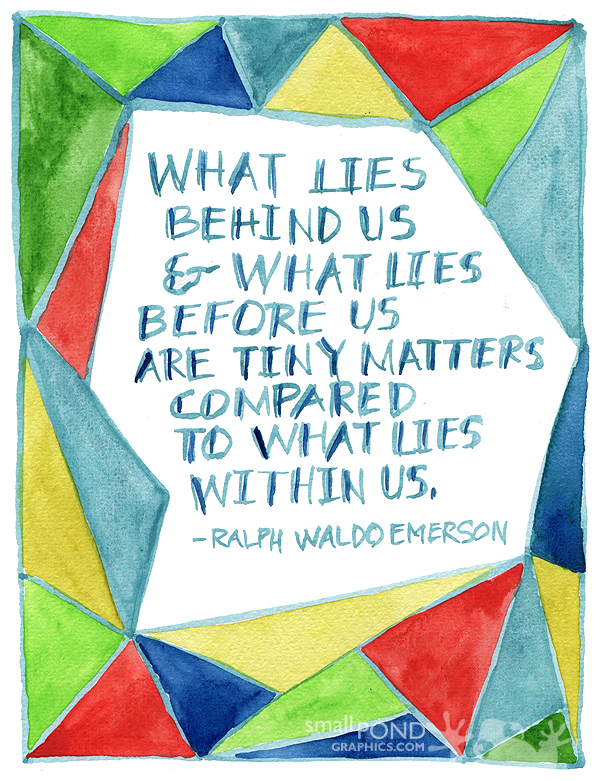 WHAT LIES
BEHIND US
& WHAT LIES
BEFORE US
ARE TINY MATTERS
COMPARED
TO WHAT LIES
WITHIN US.
-RALPH WALDO EMERSON
small POND
GRAPHICS.COM